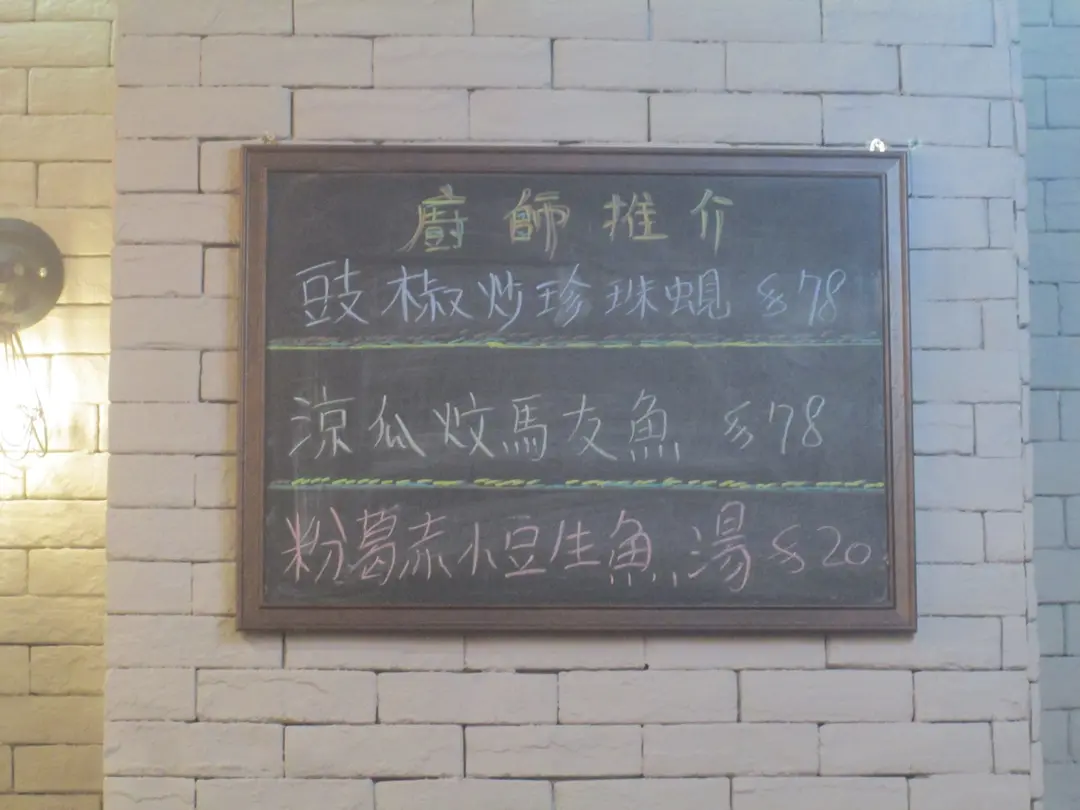 廚師推介
豉椒炒珍珠蜆 $78
涼瓜炆馬友魚 $78
粉葛赤小豆生魚湯 $20